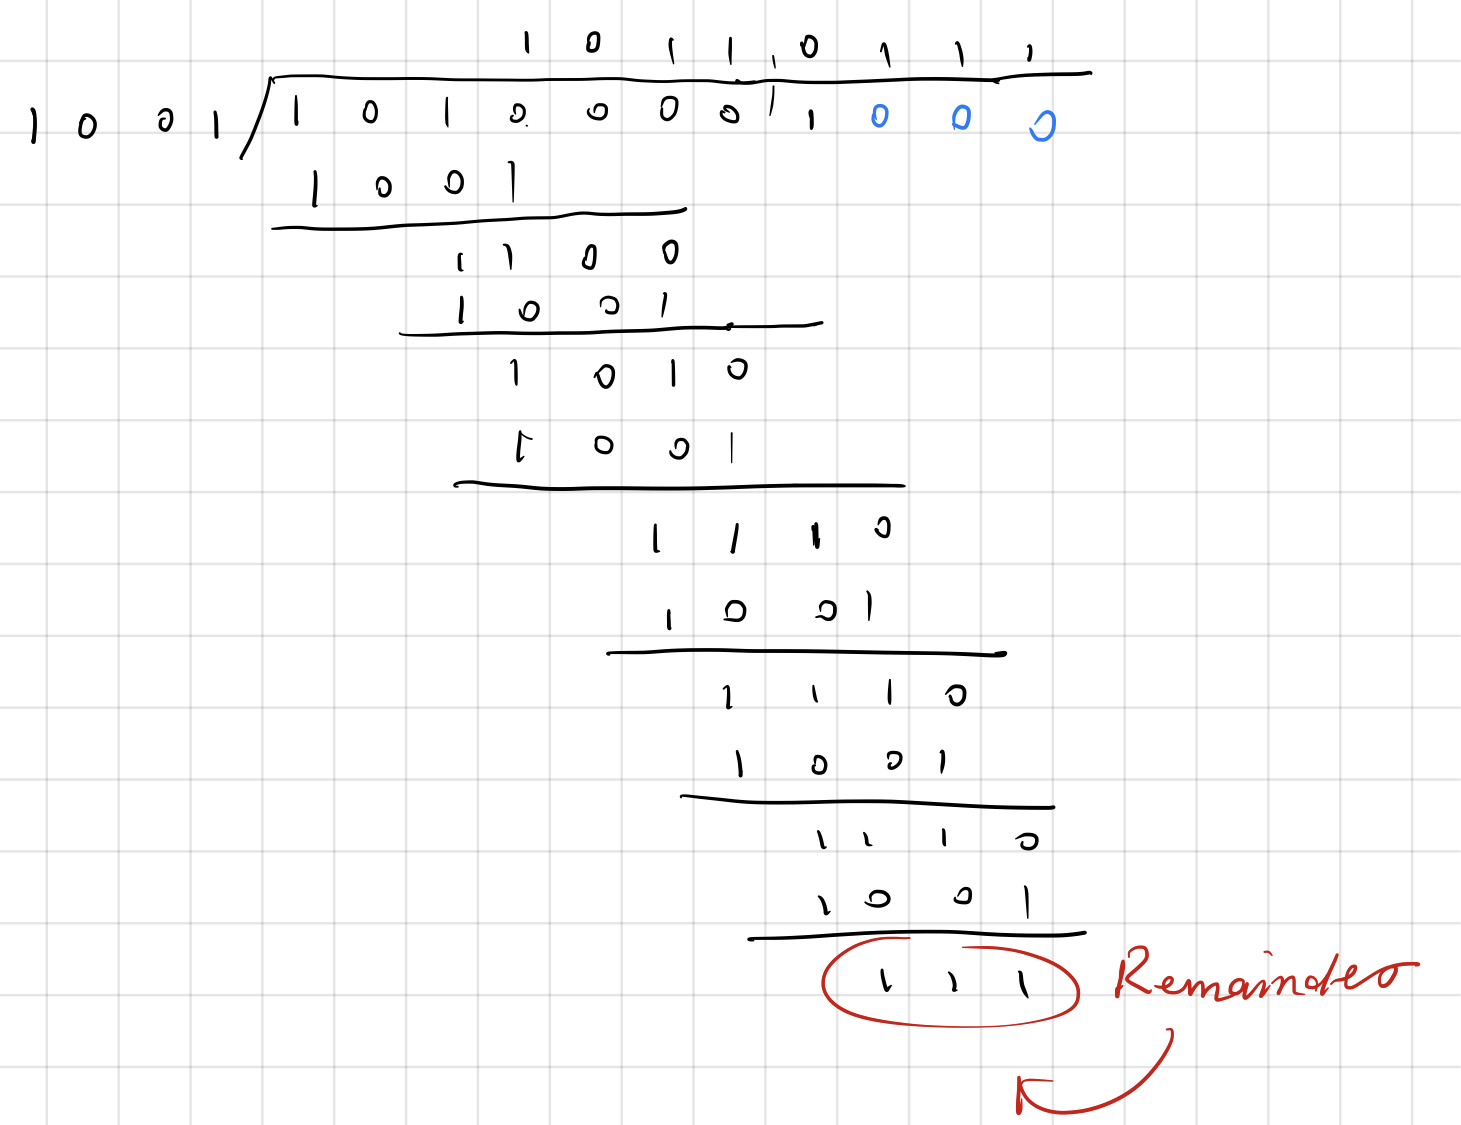 1 0 1 1 0 1 1 1
1 0 0 1 1 0 1 0 0 0 0 1 0 0 0
1 0 0 1
1 1 0 0
1 0 0 1
1 0 1 0
1 0 0 1
1 1 1 0
1 0 0 1
1 1 1 0
1 0 0 1
1 1 1 0
1 0 0 1
1 1 1 Remainder